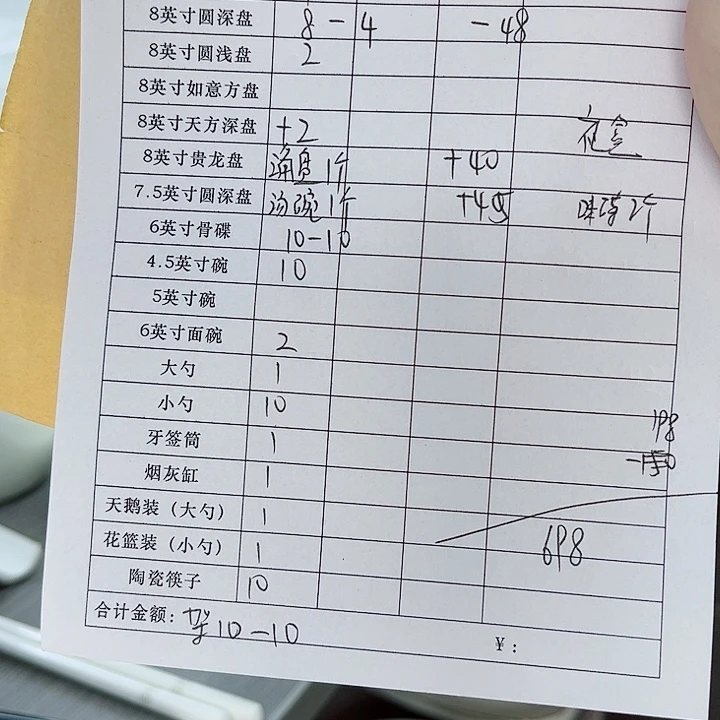 8英寸圆深盘 8-4 -48
8英寸圆浅盘 2
8英寸如意方盘
8英寸天方深盘 +2
8英寸贵龙盘 1个 +40
7.5英寸圆深盘 汤碗1个 +45
6英寸骨碟 10-10
4.5英寸碗 10
5英寸碗
6英寸面碗 2
大勺 1
小勺 10
198
牙签筒 1
烟灰缸 1
天鹅装（大勺） 1
花篮装（小勺） 1 698
陶瓷筷子 10
合计金额: 10-10 ¥: